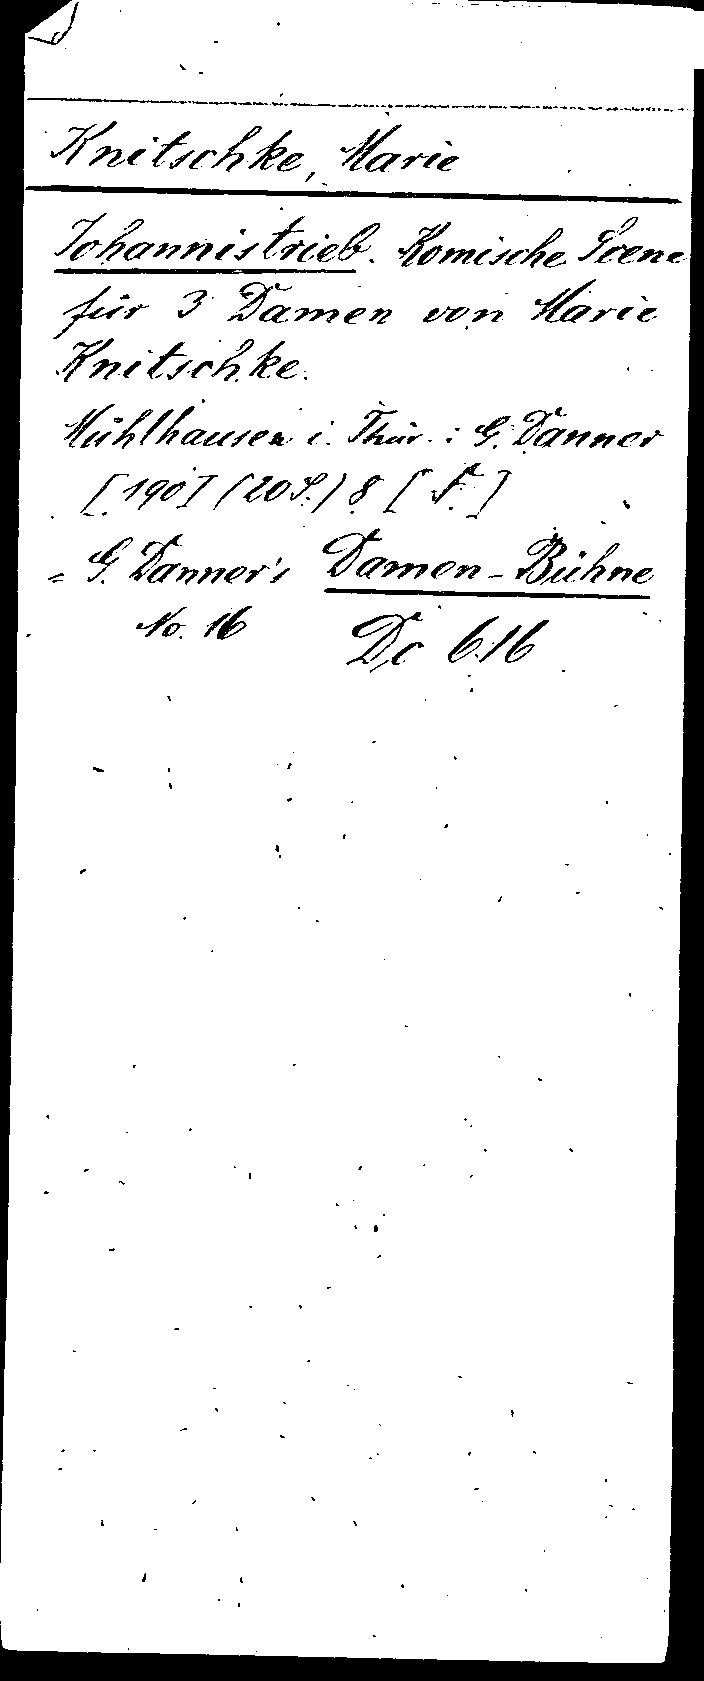 Knitschke, Marie
Johannistrieb. Komische Scene
für 3 Damen von Marie
Knitschke.
Mühlhausen i. Thür. : G. Danner
[190] (20 S.) 8 [F.]
= G. Danner's Damen-Bühne
No. 16 Dc 616